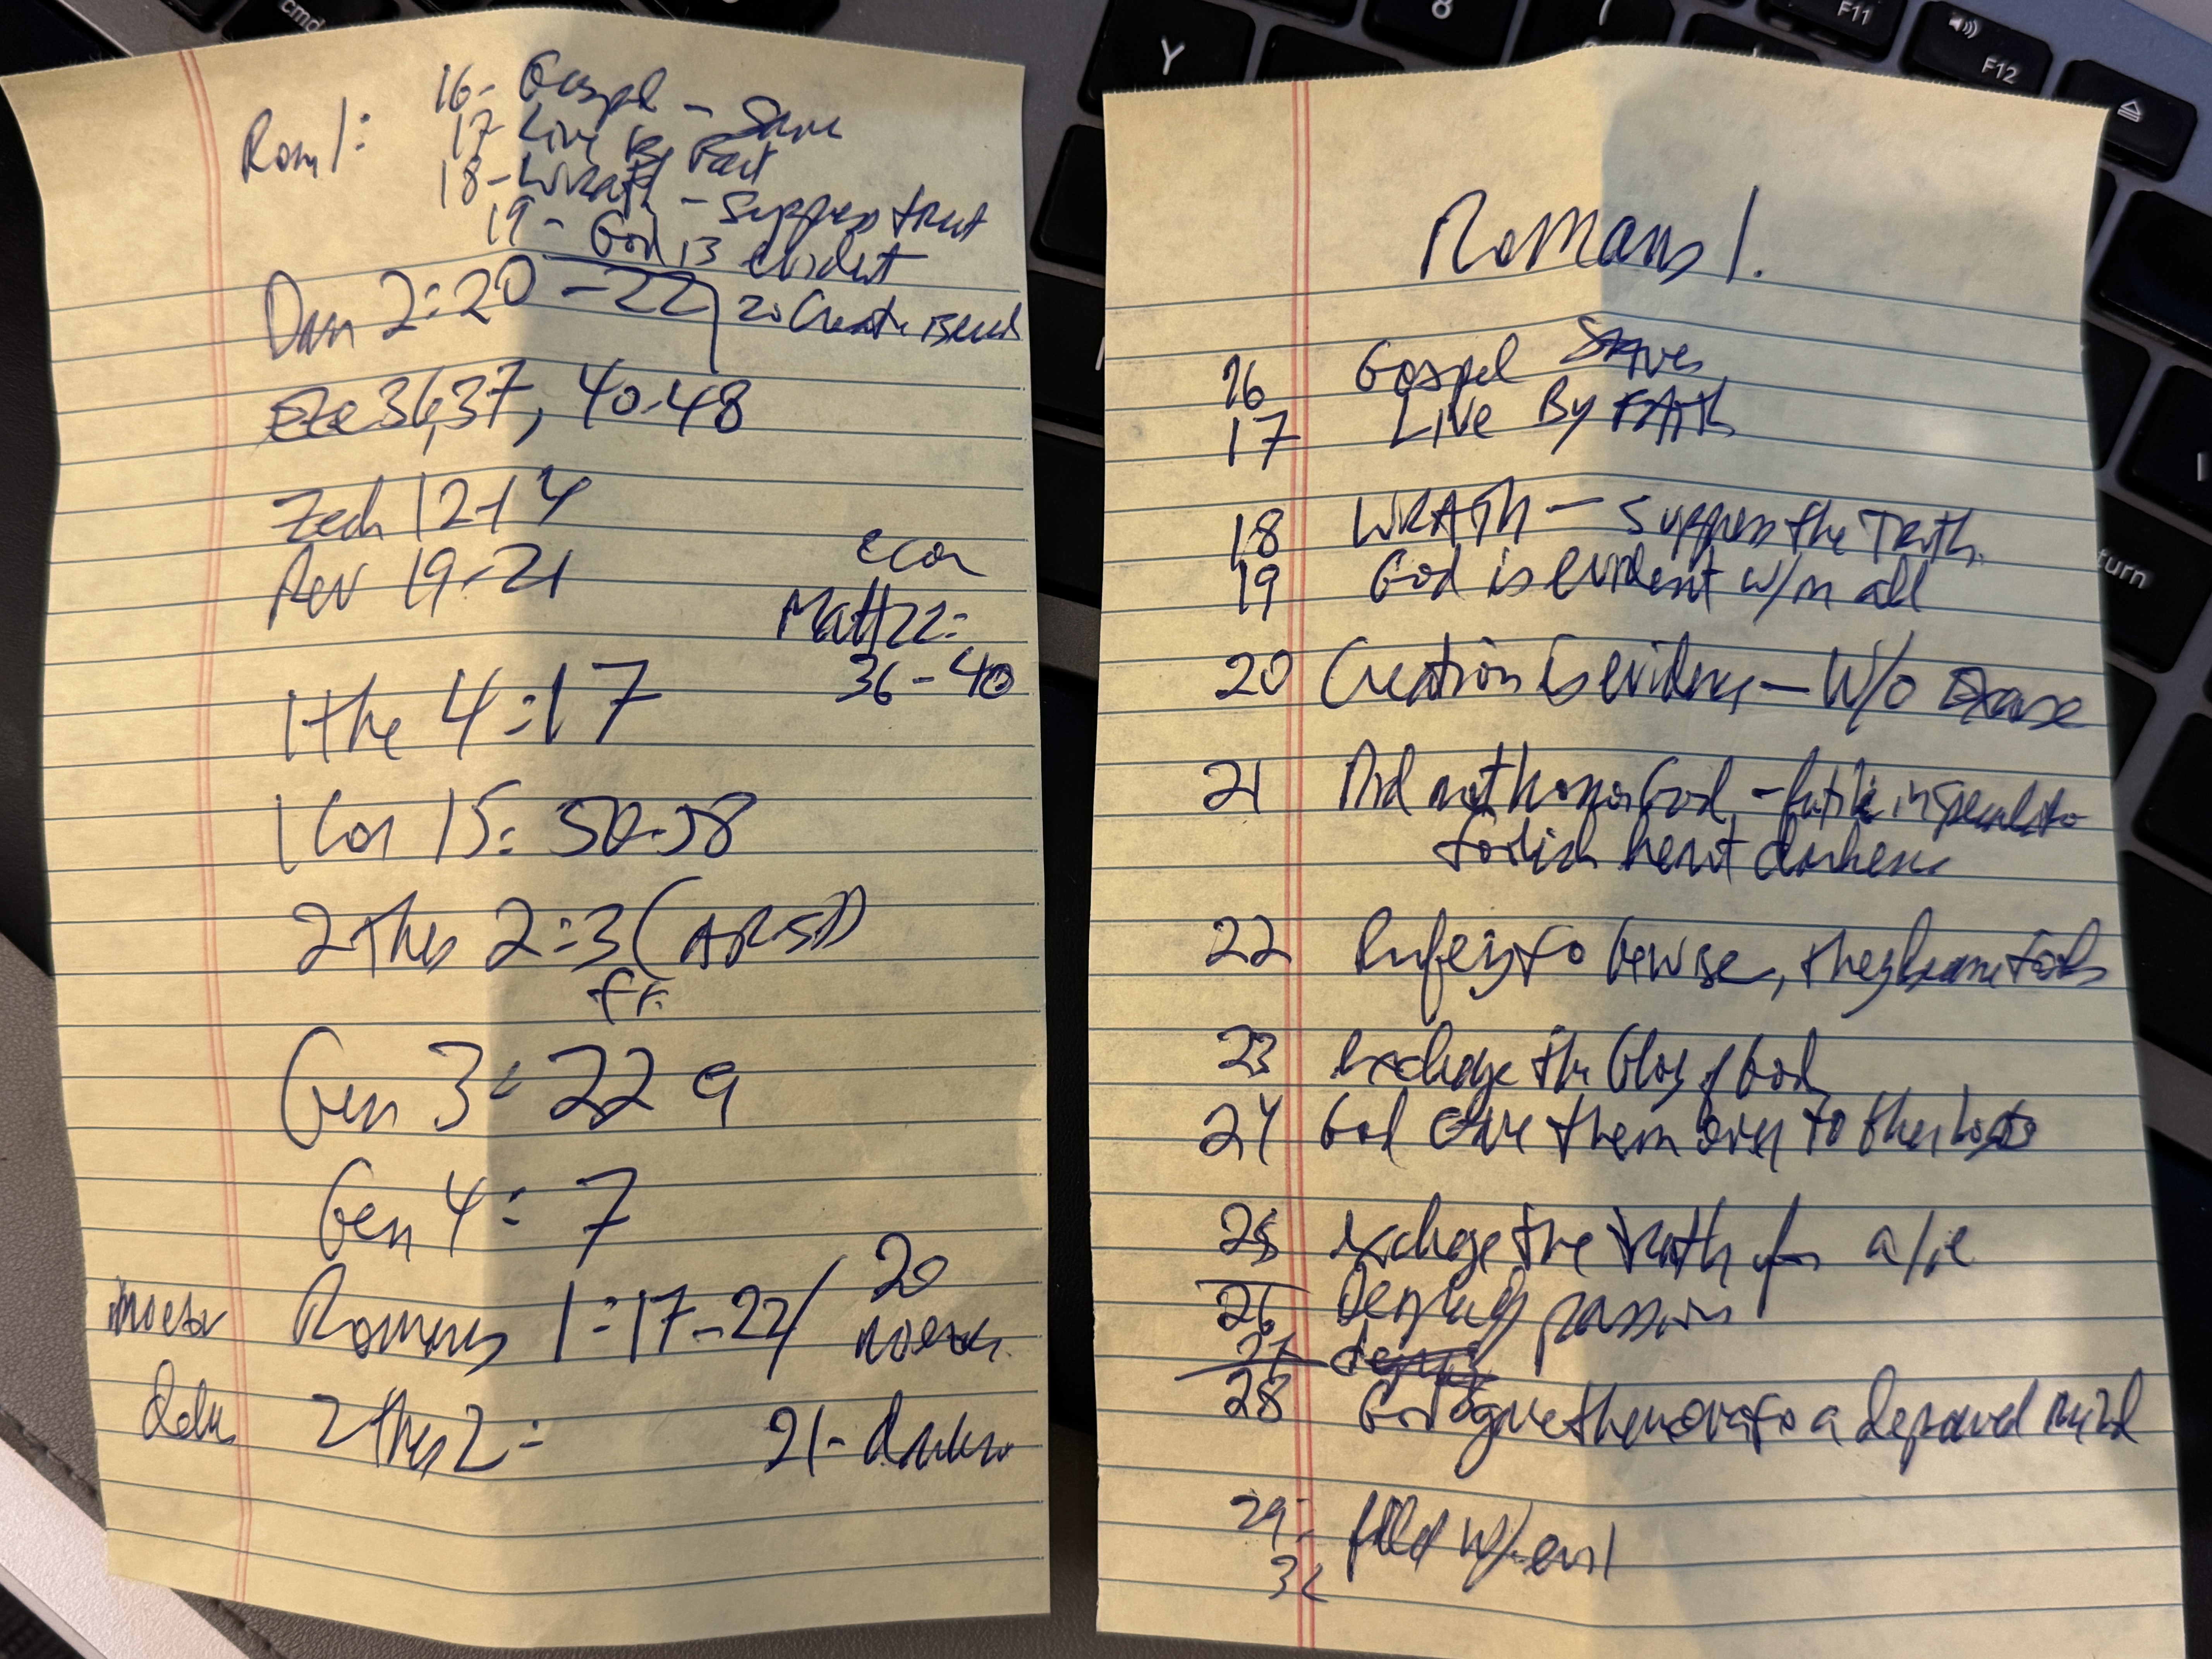 Rom 1:
16- Gospel - Save
17- Live By Fait
18- WRath - Suppress trut
19- God is Evident
Dan 2:20-22
20 Creatn is evid
Eze 36,37, 40-48
Zech 12-14
Rev 19-21
Matt 22:
36-40
1 the 4:17
1 Cor 15: 50-58
2 thes 2:3 (
ff.
Gen 3: 22 9
Gen 4: 7
Romans 1:17-22/ 20
2 thes 2:
21-
Romans 1.
16 Gospel Saves
17 Live By FAith
18 WRATh - Suppress the Truth.
19 God is Evident w/in all
20 Creation is evidenc - W/o Excuse
21 Did not honor God - futile in speculatio
foolish heart darken
22 to be wise, they became fools
23 exchange the Glory of God
24 God Gave them over to their lusts
25 exchange the truth for a lie
26 passion
27
28 God gave them over to a depraved mind
29- filled w/ evil
32
Y
8
F11
F12
cmd
turn